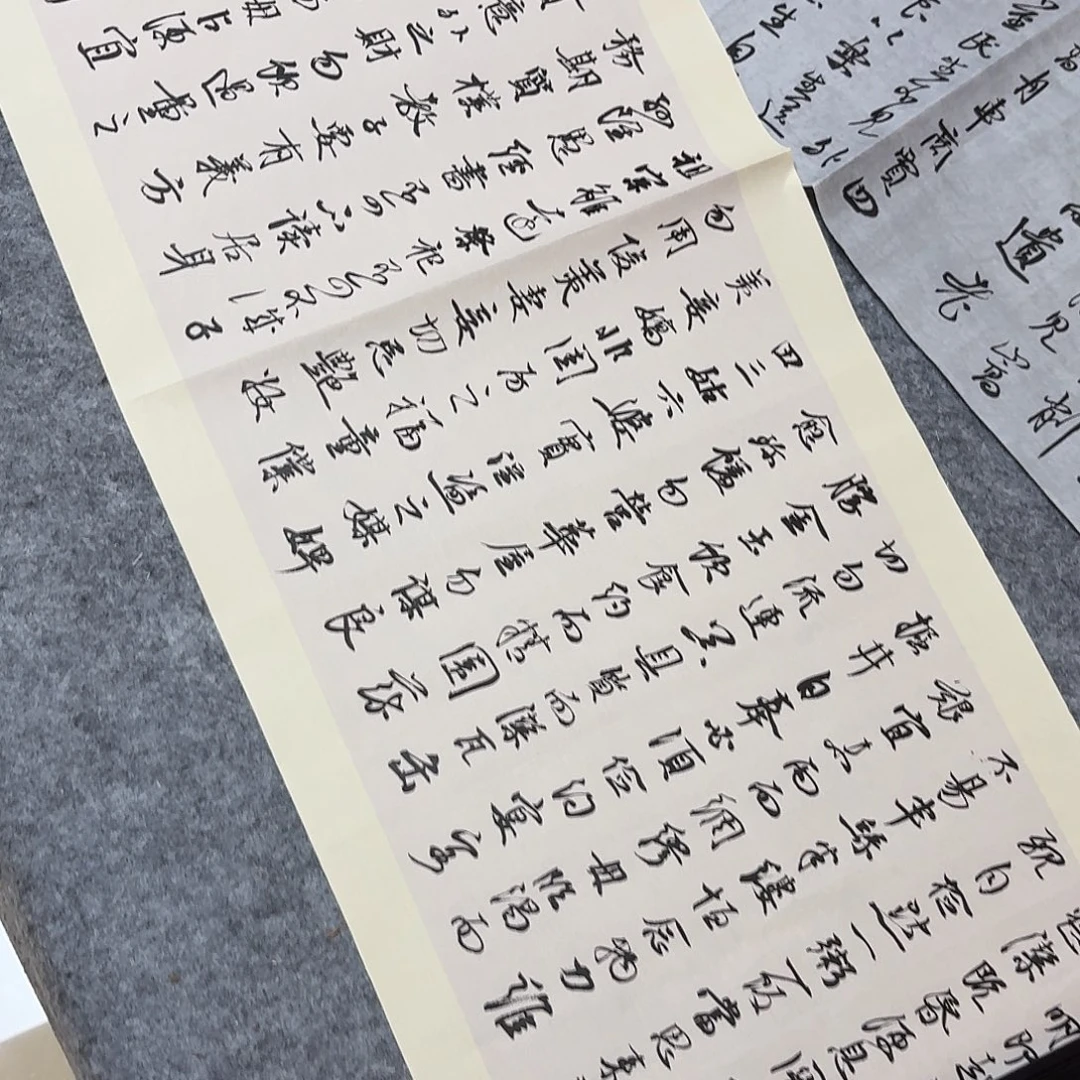 潔既昏便息關
親自檢點一粥一飯當思來
不易半絲半縷恒念物力維
艱宜未雨而綢繆毋臨渴而
掘井自奉必須儉約宴客
切勿流連器具質而潔瓦缶
勝金玉飲食約而精園蔬
愈珍饈勿營華屋勿謀良
田三姑六婆實淫盜之媒婢
美妾嬌非閨房之福童僕
勿用俊美妻妾切忌艷妝
祖宗雖遠祭祀不可不誠子
孫雖愚經書不可不讀居身
務期質樸教子要有義方
意外之財勿飲過量之
毋占便宜
舟車商賈四
遺